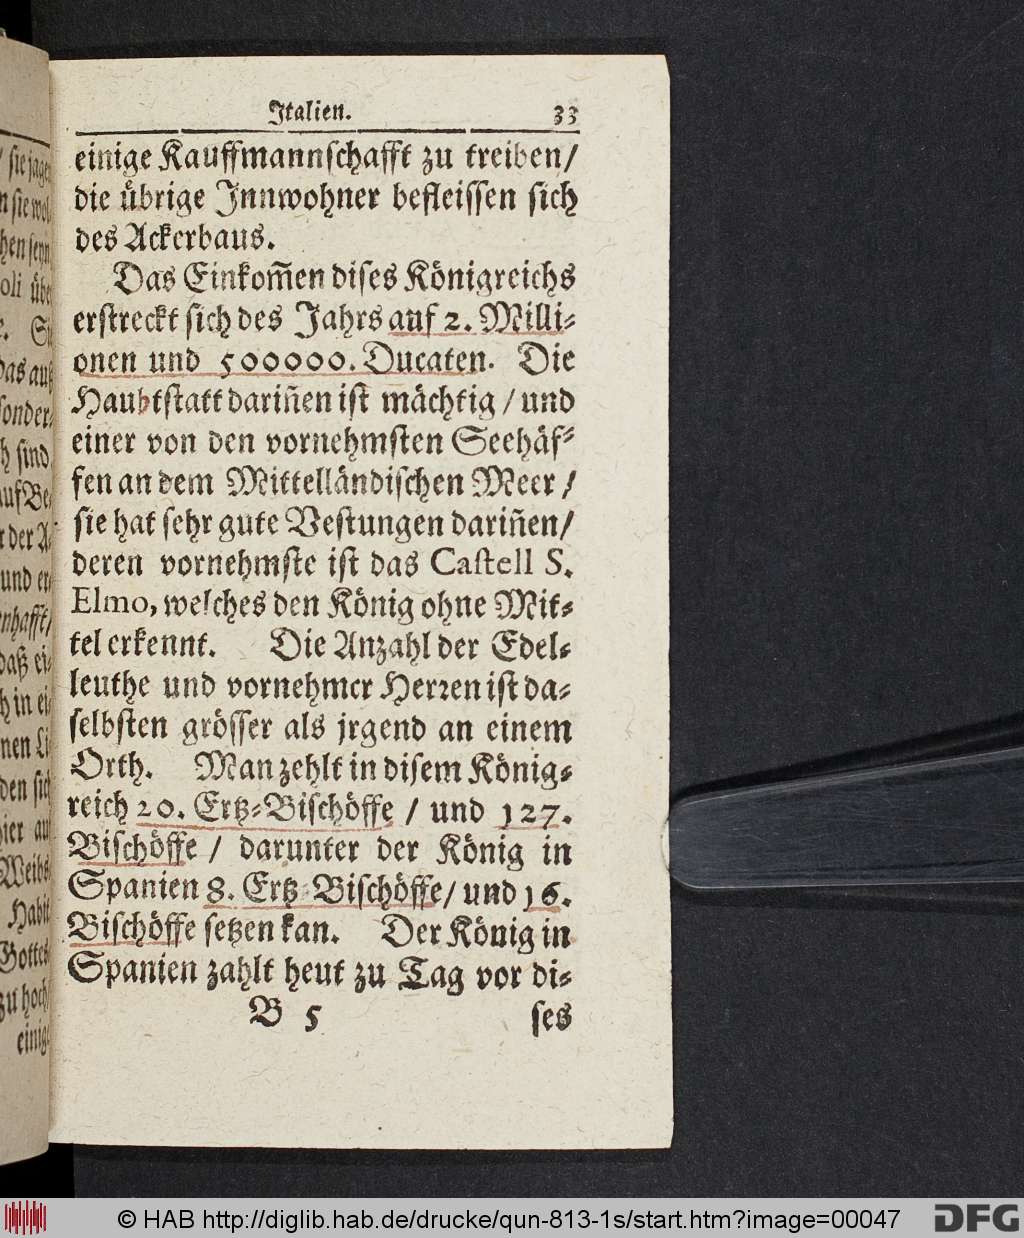 Italien. 33
einige Kauffmannschafft zu treiben/
die übrige Innwohner befleissen sich
des Ackerbaus.
Das Einkom̃en dises Königreichs
erstreckt sich des Jahrs auf 2. Milli-
onen und 500000. Ducaten. Die
Haubtstatt dariñen ist mächtig / und
einer von den vornehmsten Seehäf-
fen an dem Mittelländischen Meer /
sie hat sehr gute Vestungen dariñen/
deren vornehmste ist das Castell S.
Elmo, welches den König ohne Mit-
tel erkennt. Die Anzahl der Edel-
leuthe und vornehmer Herren ist da-
selbsten grösser als jrgend an einem
Orth. Man zehlt in disem König-
reich 20. Ertz-Bischöffe / und 127.
Bischöffe / darunter der König in
Spanien 8. Ertz-Bischöffe/ und 16.
Bischöffe setzen kan. Der König in
Spanien zahlt heut zu Tag vor di-
B 5 ses
© HAB http://diglib.hab.de/drucke/qun-813-1s/start.htm?image=00047
DFG